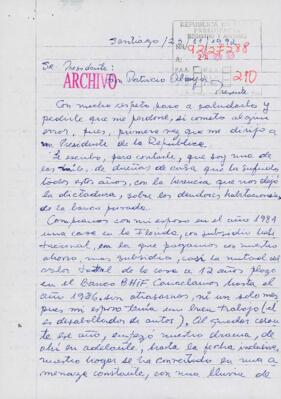 Santiago, 22/11/1992
REPUBLICA DE CHILE
PRESIDENCIA
REGISTRO Y ARCHIVO
NR. 92/27288
210
Sr. Presidente:
ARCHIVO
Don Patricio Aylwin
Presente.
Con mucho respeto paso a saludarlo y
pedirle que me perdone, si cometo algún
error, pues, primera vez que me dirijo a
un Presidente de la República.
Le escribo, para contarle, que soy una de
las miles, de dueñas de casa que ha sufrido
todos estos años, con la herencia que nos dejó
la dictadura, sobre los deudores habitacionales
de la banca privada.
Compramos con mi esposo en el año 1981
una casa en la Florida, con subsidio habi-
tacional, en la que pagamos con nuestro
ahorro mas subsidio, casi la mitad del
valor total de la casa a 12 años plazo
en el Banco BHIF. Cancelamos hasta el
año 1986, sin atrasarnos, ni un solo mes
pues mi esposo tenía un buen trabajo (el
es desabollador de autos). Al quedar cesan-
te ese año, empezó nuestro drama, de
ahí en adelante, hasta la fecha inclusive,
nuestro hogar se ha convertido en una a-
menaza constante, con una lluvia de